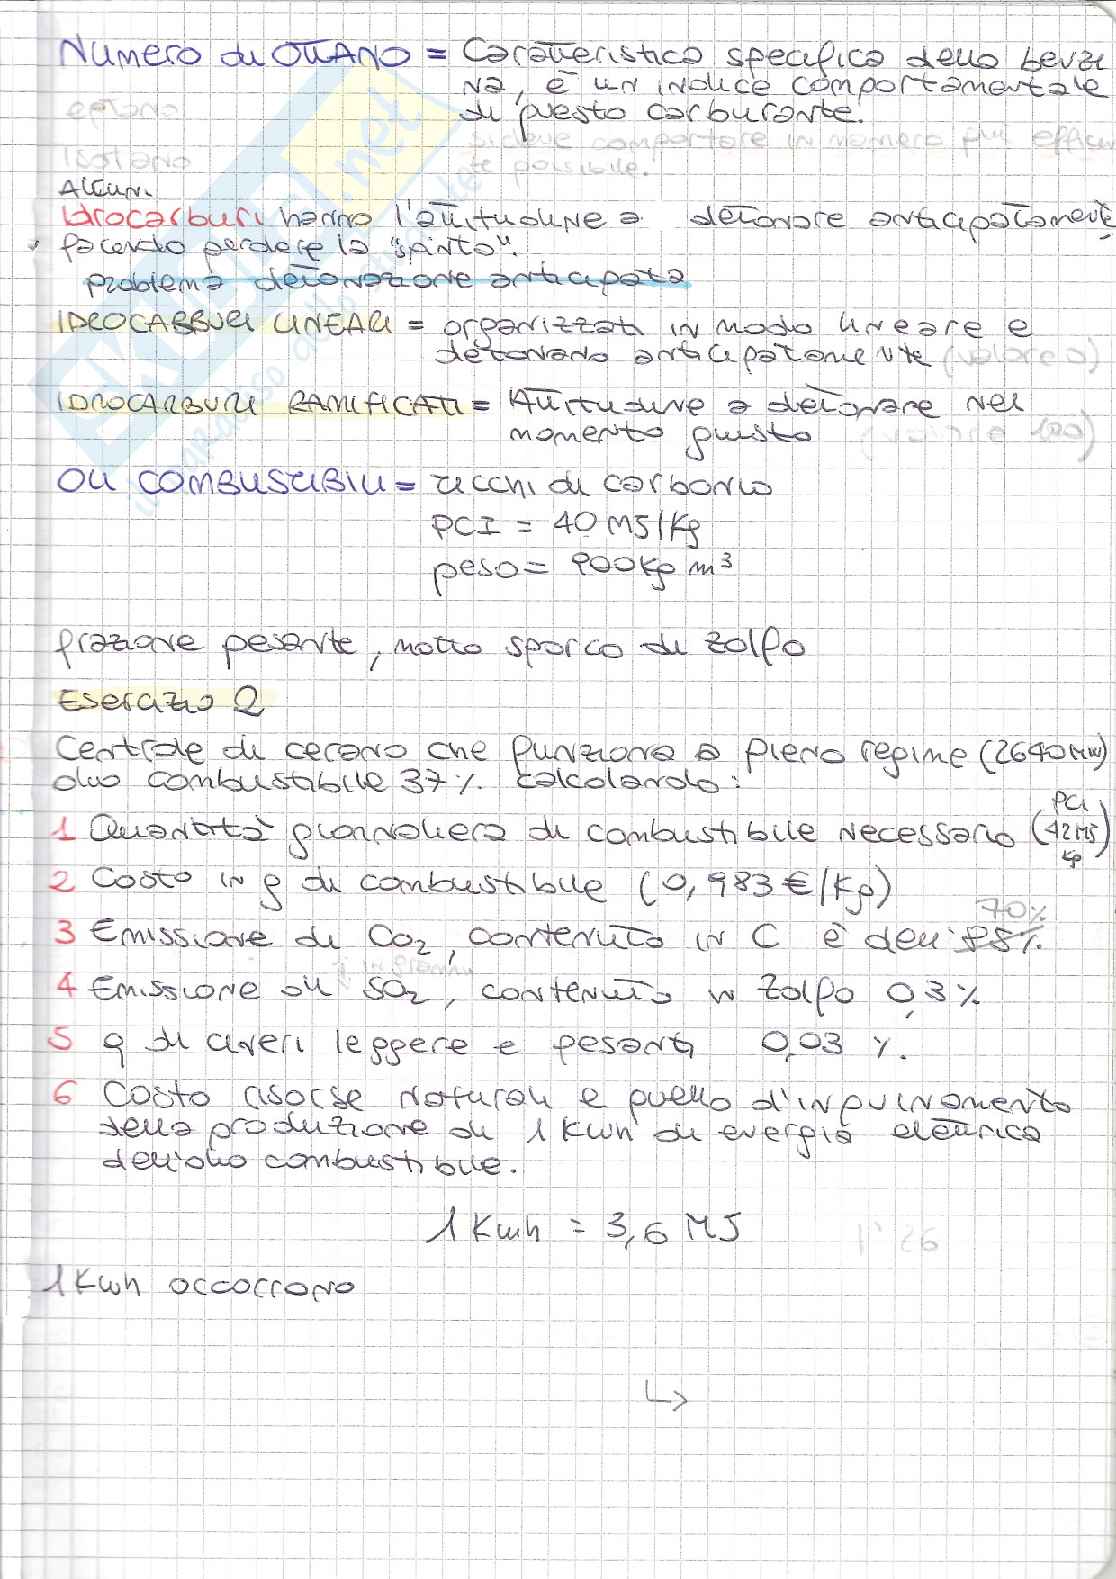 Numero di OTTANO = Caratteristica specifica della benzi
na, è un indice comportamentale
di questo carburante.
eptano
si deve comportare in maniera più efficien
te possibile.
Isottano
Alcuni
Idrocarburi hanno l'attitudine a detonare anticipatamente,
facendo perdere la "spinta".
problema detonazione anticipata
IDROCARBURI LINEARI = organizzati in modo lineare e
detonano anticipatamente (valore 0)
IDROCARBURI RAMIFICATI = Attitudine a detonare nel
momento giusto (valore 100)
OLI COMBUSTIBILI = ricchi di carbonio
PCI = 40 MJ/Kg
peso = 900 kg m³
frazione pesante, molto sporco di zolfo
Esercizio 2
Centrale di cerano che funziona a pieno regime (2640 MW)
olio combustibile 37%. calcolando:
1 Quantità giornaliera di combustibile necessario (PCI 42 MJ/Kg)
2 Costo in g di combustibile (0,983 €/Kg)
70%
3 Emissione di CO2, contenuto in C è dell' 85%
4 Emissione di SO2, contenuto in zolfo 0,3%
5 q di ceneri leggere e pesanti 0,03 %.
6 Costo risorse naturali e quello d'inquinamento
della produzione di 1 kwh di energia elettrica
dell'olio combustibile.
1 Kwh = 3,6 MJ
1 Kwh occorrono